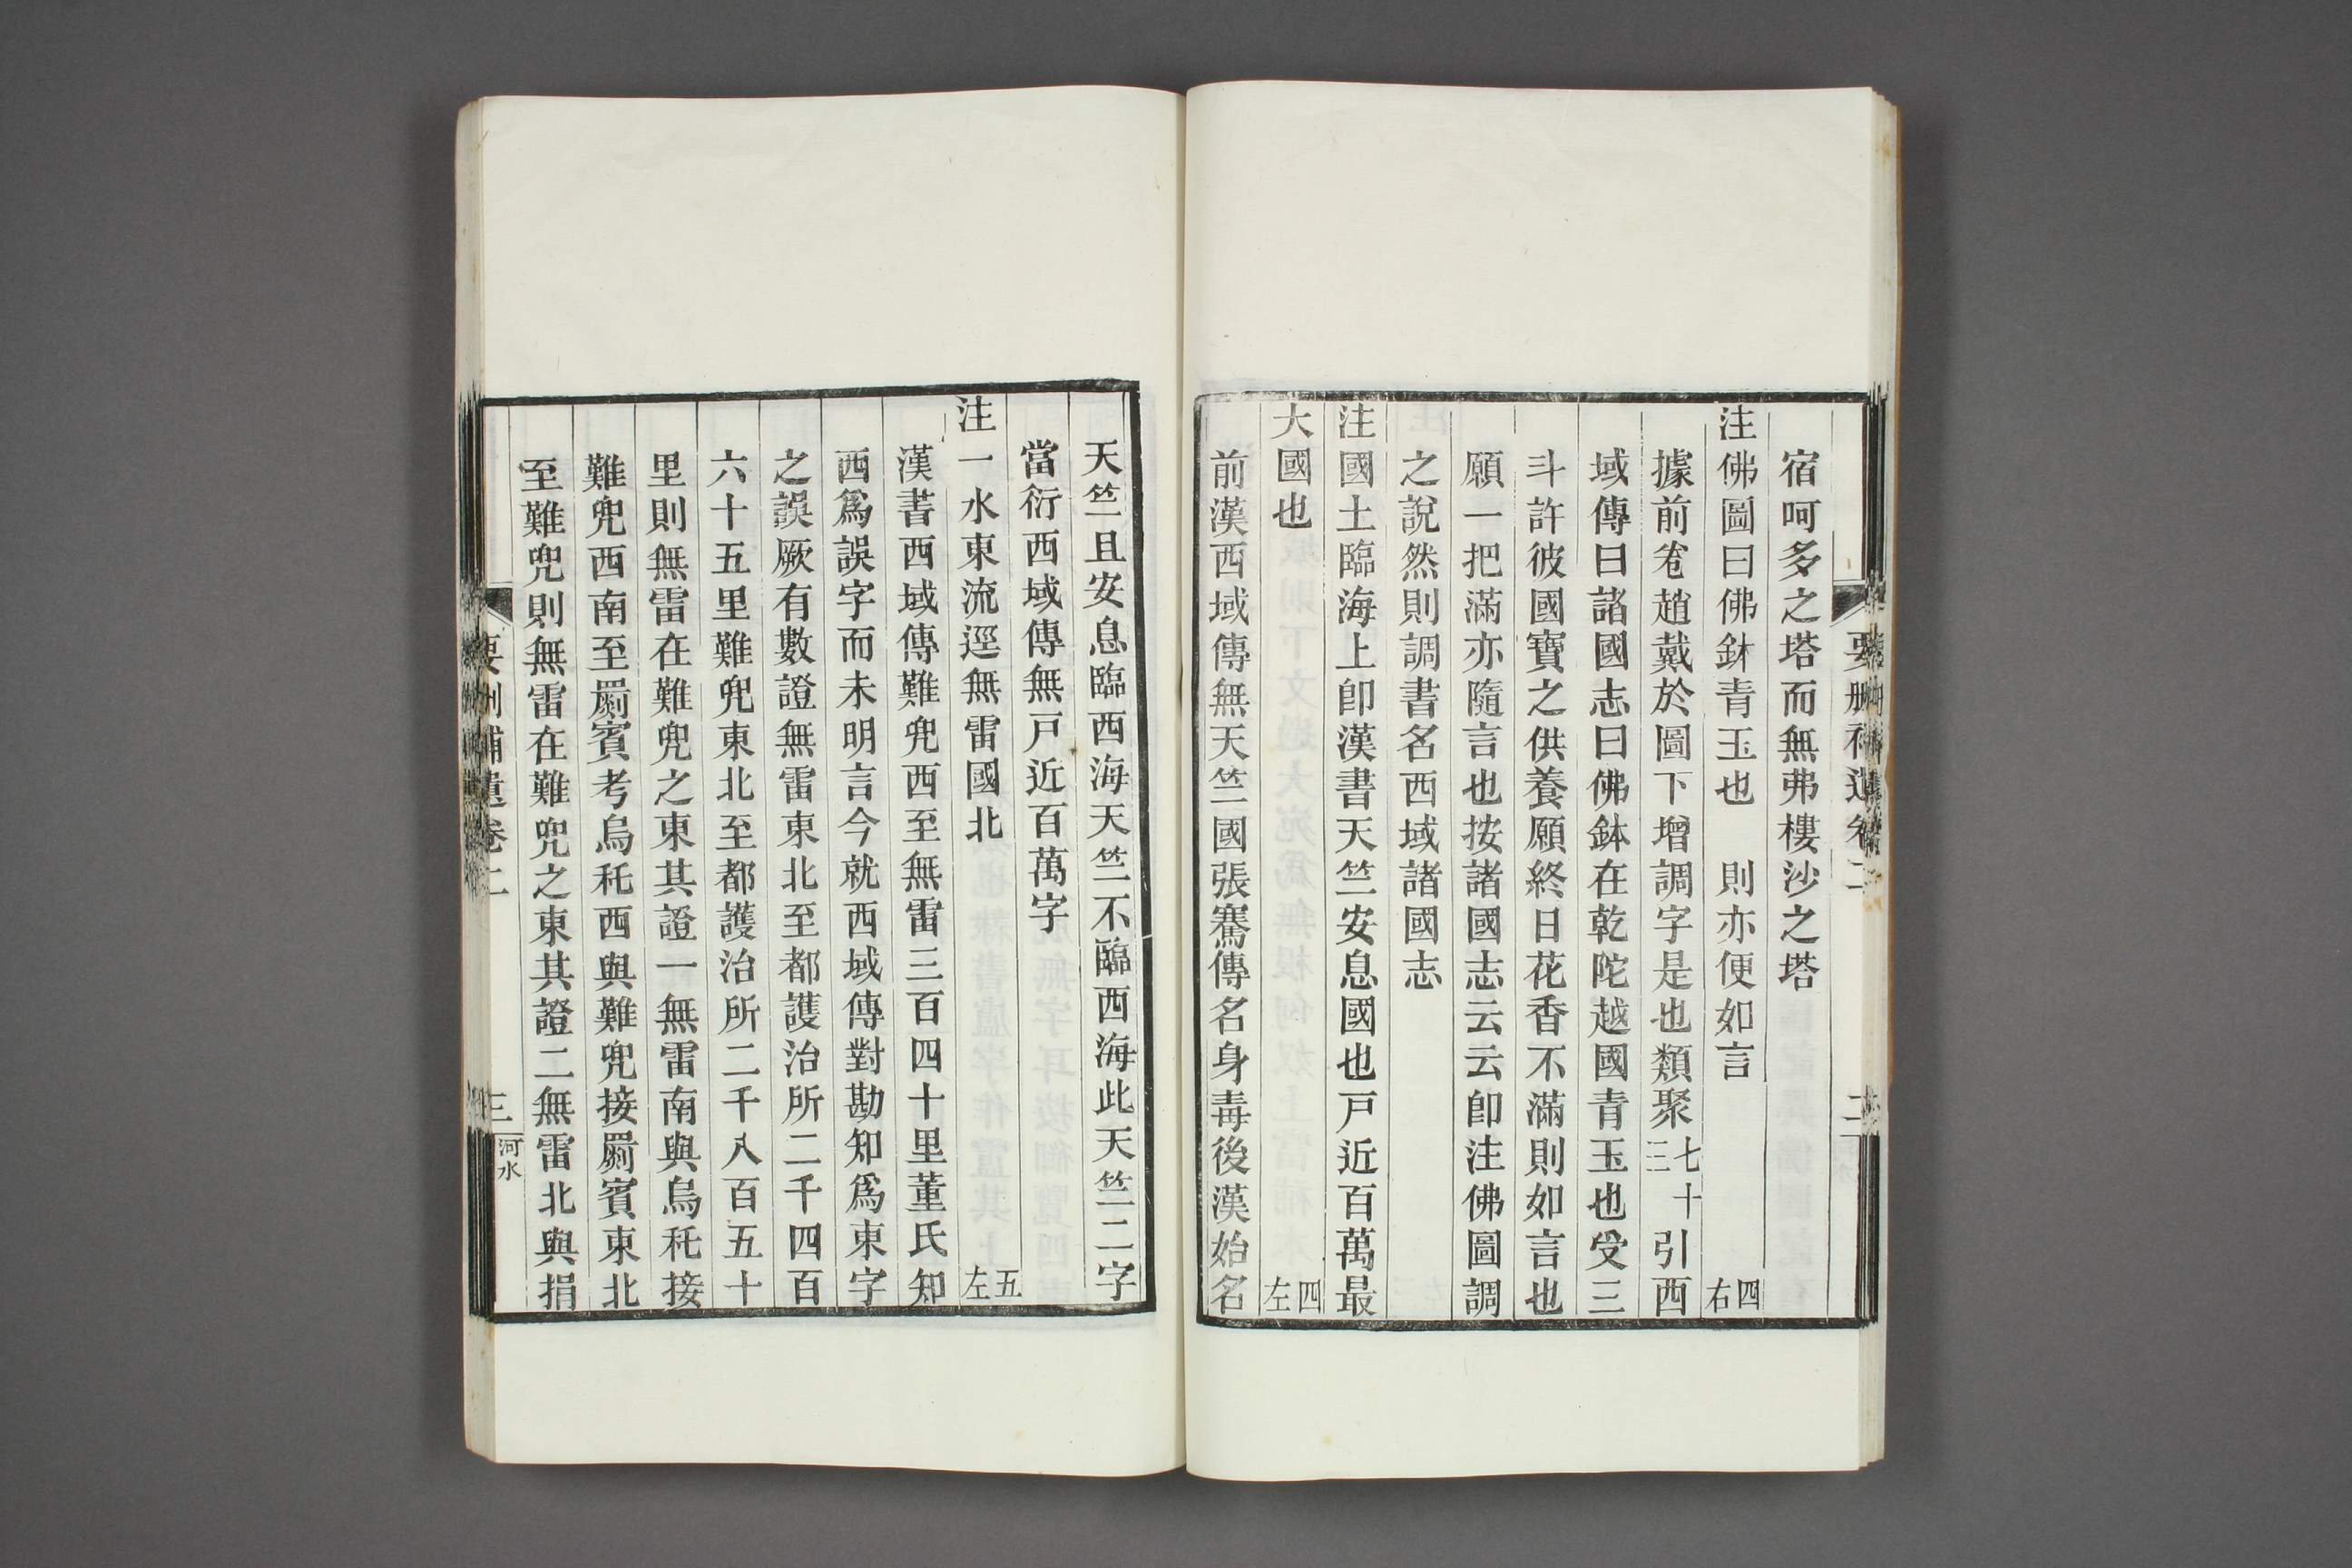 宿呵多之塔而無弗樓沙之塔
注佛圖曰佛鉢青玉也　則亦便如言　四右
據前卷趙戴於圖下增調字是也類聚七十三引西
域傳曰諸國志曰佛鉢在乾陀越國青玉也受三
斗許彼國寶之供養願終日花香不滿則如言也
願一把滿亦隨言也按諸國志云云卽注佛圖調
之說然則調書名西域諸國志
注國土臨海上卽漢書天竺安息國也戸近百萬最
大國也　四左
前漢西域傳無天竺國張騫傳名身毒後漢始名
天竺且安息臨西海天竺不臨西海此天竺二字
當衍西域傳無戸近百萬字
注一水東流逕無雷國北　五左
漢書西域傳難兜西至無雷三百四十里董氏知
西爲誤字而未明言今就西域傳對勘知爲東字
之誤厥有數證無雷東北至都護治所二千四百
六十五里難兜東北至都護治所二千八百五十
里則無雷在難兜之東其證一無雷南與烏秅接
難兜西南至罽賓考烏秅西與難兜接罽賓東北
至難兜則無雷在難兜之東其證二無雷北與捐
要刪補遺卷二
三
河水